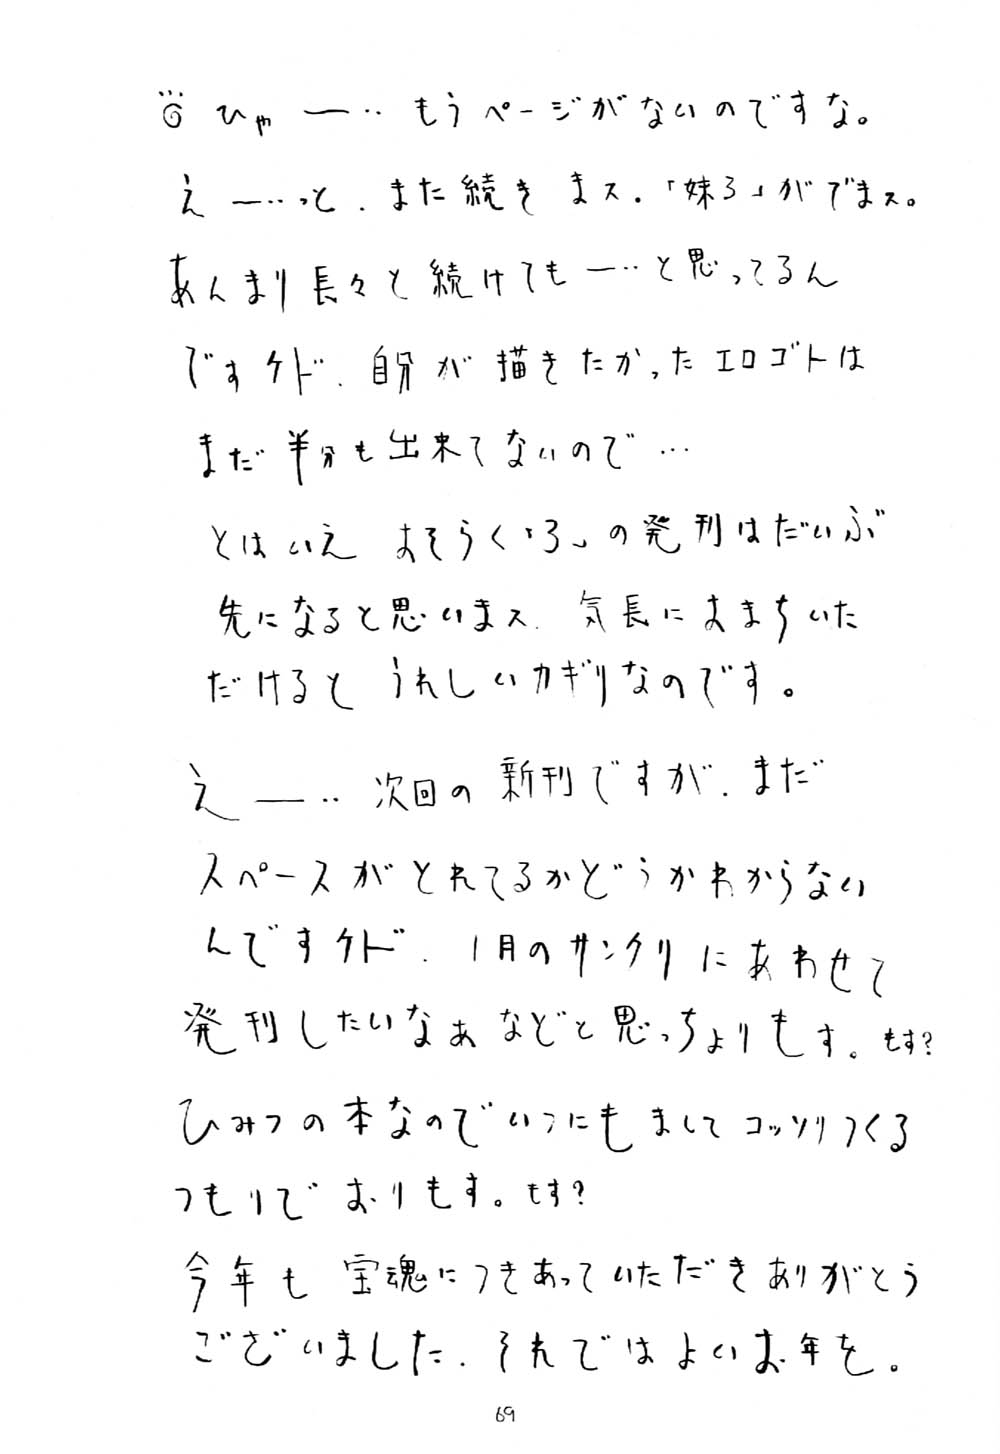 ひゃー‥もうページがないのですな。
えー‥っと、また続きまス。「妹3」がでまス。
あんまり長々と続けてもー‥と思ってるん
ですケド、自分が描きたかったエロゴトは
まだ半分も出来てないので…
とはいえ おそらく「3」の発刊はだいぶ
先になると思いまス、気長におまちいた
だけると うれしいカギリなのです。
えー‥次回の新刊ですが、まだ
スペースがとれてるかどうかわからない
んですケド、1月のサンクリにあわせて
発刊したいなぁなどと思っちょりもす。もす?
ひみつの本なのでいつにもましてコッソリつくる
つもりでおりもす。もす?
今年も宝魂につきあっていただきありがとう
ございました、それではよいお年を。
69